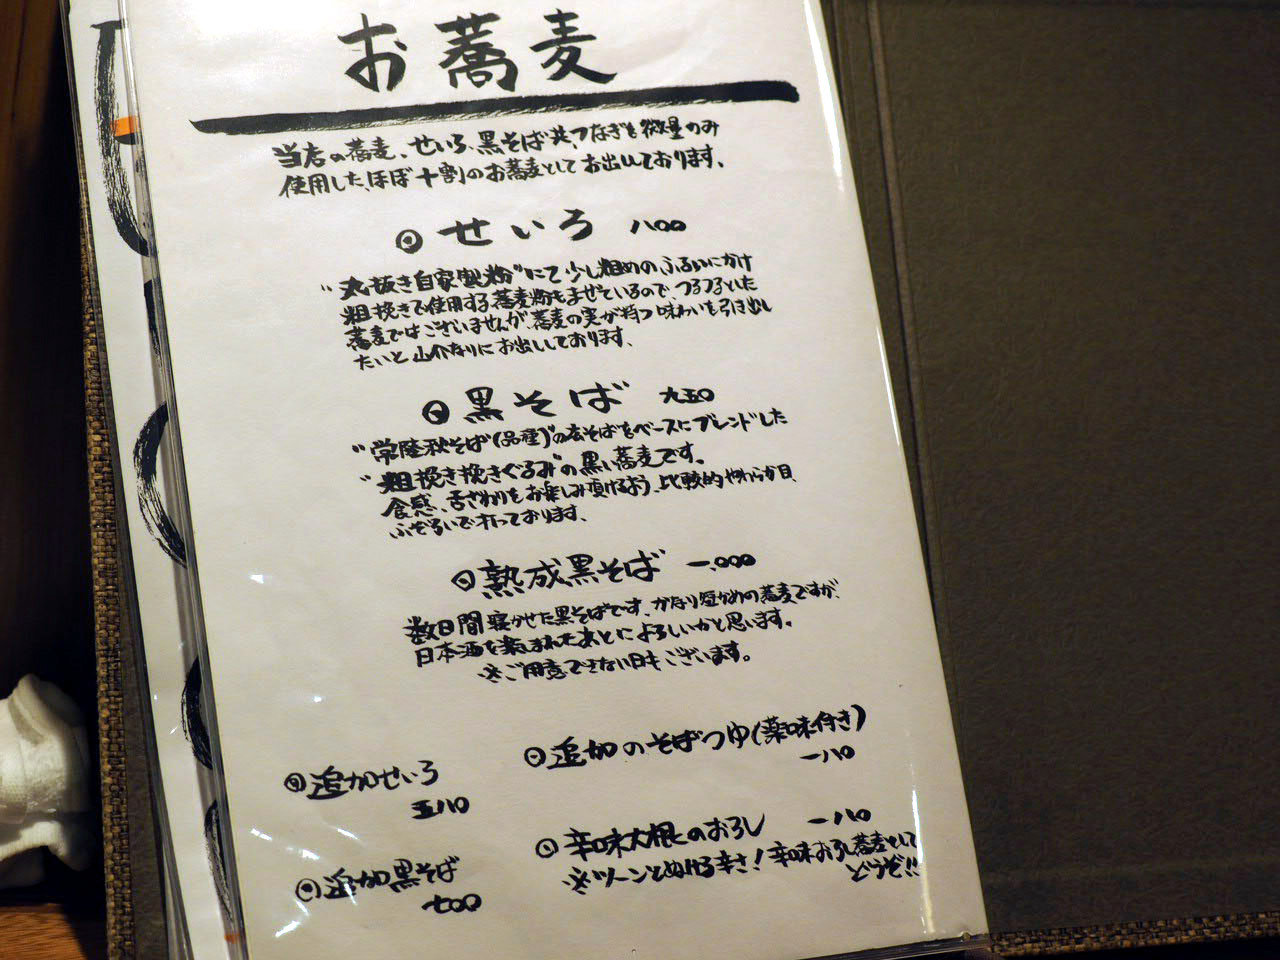 お蕎麦
当店の蕎麦、せいろ、黒そば共、つなぎを微量のみ
使用した、ほぼ十割のお蕎麦としてお出ししております。
せいろ 八〇〇
"丸抜き自家製粉"にて少し粗めのふるいにかけ
粗挽きで使用する蕎麦粉もまぜているので、つるつるとした
蕎麦ではございませんが、蕎麦の実が持つ味わいを引き出し
たいと山介なりにお出ししております。
黒そば 九五〇
"常陸秋そば(品種)"の玄そばをベースにブレンドした
"粗挽き挽きぐるみ"の黒い蕎麦です。
食感、舌ざわりをお楽しみ頂けるよう、比較的やわらか目、
ふぞろいで打っております。
熟成黒そば 一、〇〇〇
数日間寝かせた黒そばです。かなり短かめの蕎麦ですが、
日本酒を楽しまれたあとによろしいかと思います。
※ご用意できない日もございます。
追加せいろ
五八〇
追加のそばつゆ(薬味付き)
一八〇
追加黒そば
七〇〇
辛味大根のおろし 一八〇
※ツーンとぬける辛さ!辛味おろし蕎麦として
どうぞ!!